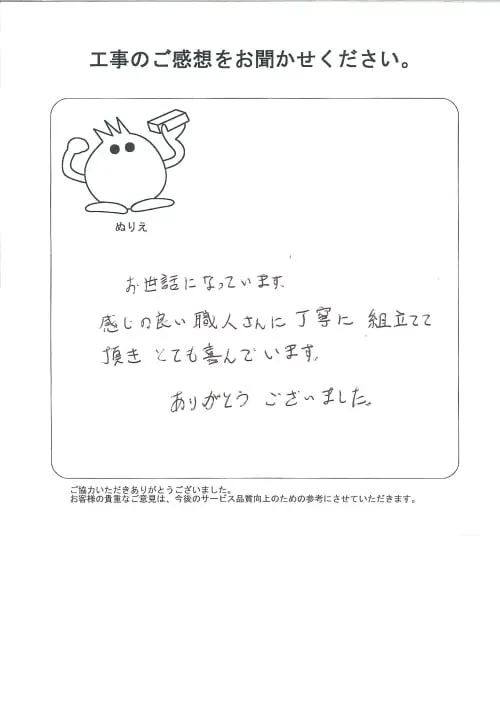 工事のご感想をお聞かせください。
ぬりえ
お世話になっています。
感じの良い職人さんに丁寧に 組立てて
頂き とても喜んでいます。
ありがとう ございました。
ご協力いただきありがとうございました。
お客様の貴重なご意見は、今後のサービス品質向上のための参考にさせていただきます。